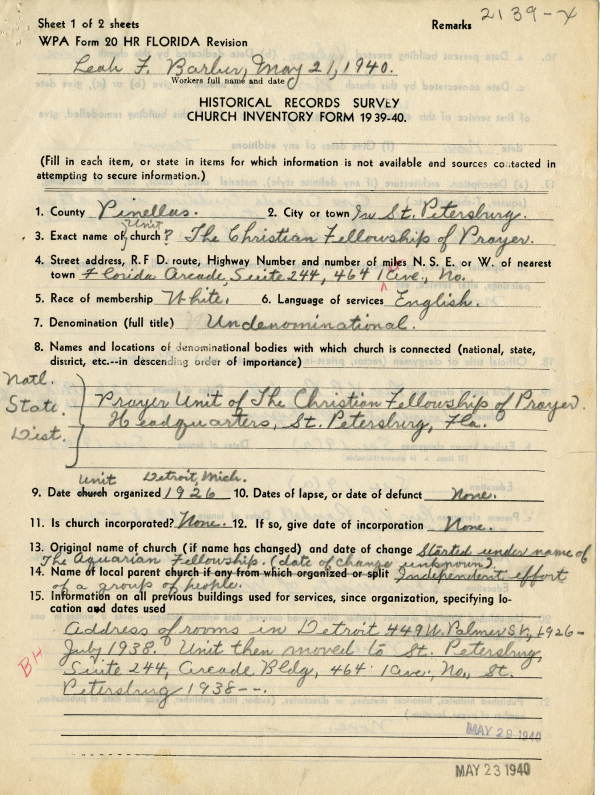 Sheet 1 of 2 sheets
Remarks 2139-X
WPA Form 20 HR FLORIDA Revision
Leah F. Barber, May 21, 1940.
Workers full name and date
HISTORICAL RECORDS SURVEY
CHURCH INVENTORY FORM 1939-40.
(Fill in each item, or state in items for which information is not available and sources contacted in
attempting to secure information.)
1. County Pinellas. 2. City or town In St. Petersburg.
unit
3. Exact name of church? The Christian Fellowship of Prayer.
4. Street address, R.F D. route, Highway Number and number of miles N. S. E. or W. of nearest
town Florida Arcade, Suite 244, 464 1 Ave., No.
5. Race of membership White. 6. Language of services English.
7. Denomination (full title) Undenominational.
8. Names and locations of denominational bodies with which church is connected (national, state,
district, etc.--in descending order of importance)
Natl.
State.
Dist.
Prayer Unit of The Christian Fellowship of Prayer.
Headquarters, St. Petersburg, Fla.
Unit Detroit, Mich.
9. Date church organized 1926 10. Dates of lapse, or date of defunct None.
11. Is church incorporated? None. 12. If so, give date of incorporation None.
13. Original name of church (if name has changed) and date of change Started under name of
The Aquarian Fellowship. (date of change unknown)
14. Name of local parent church if any from which organized or split Independent effort
of a group of people.
15. Information on all previous buildings used for services, since organization, specifying lo-
cation and dates used
Address of rooms in Detroit 449 W. Palmer St., 1926-
July 1938. Unit then moved to St. Petersburg,
Suite 244, Arcade Bldg, 464 1 Ave., No., St.
Petersburg 1938--.
BH
MAY 29 1940
MAY 23 1940